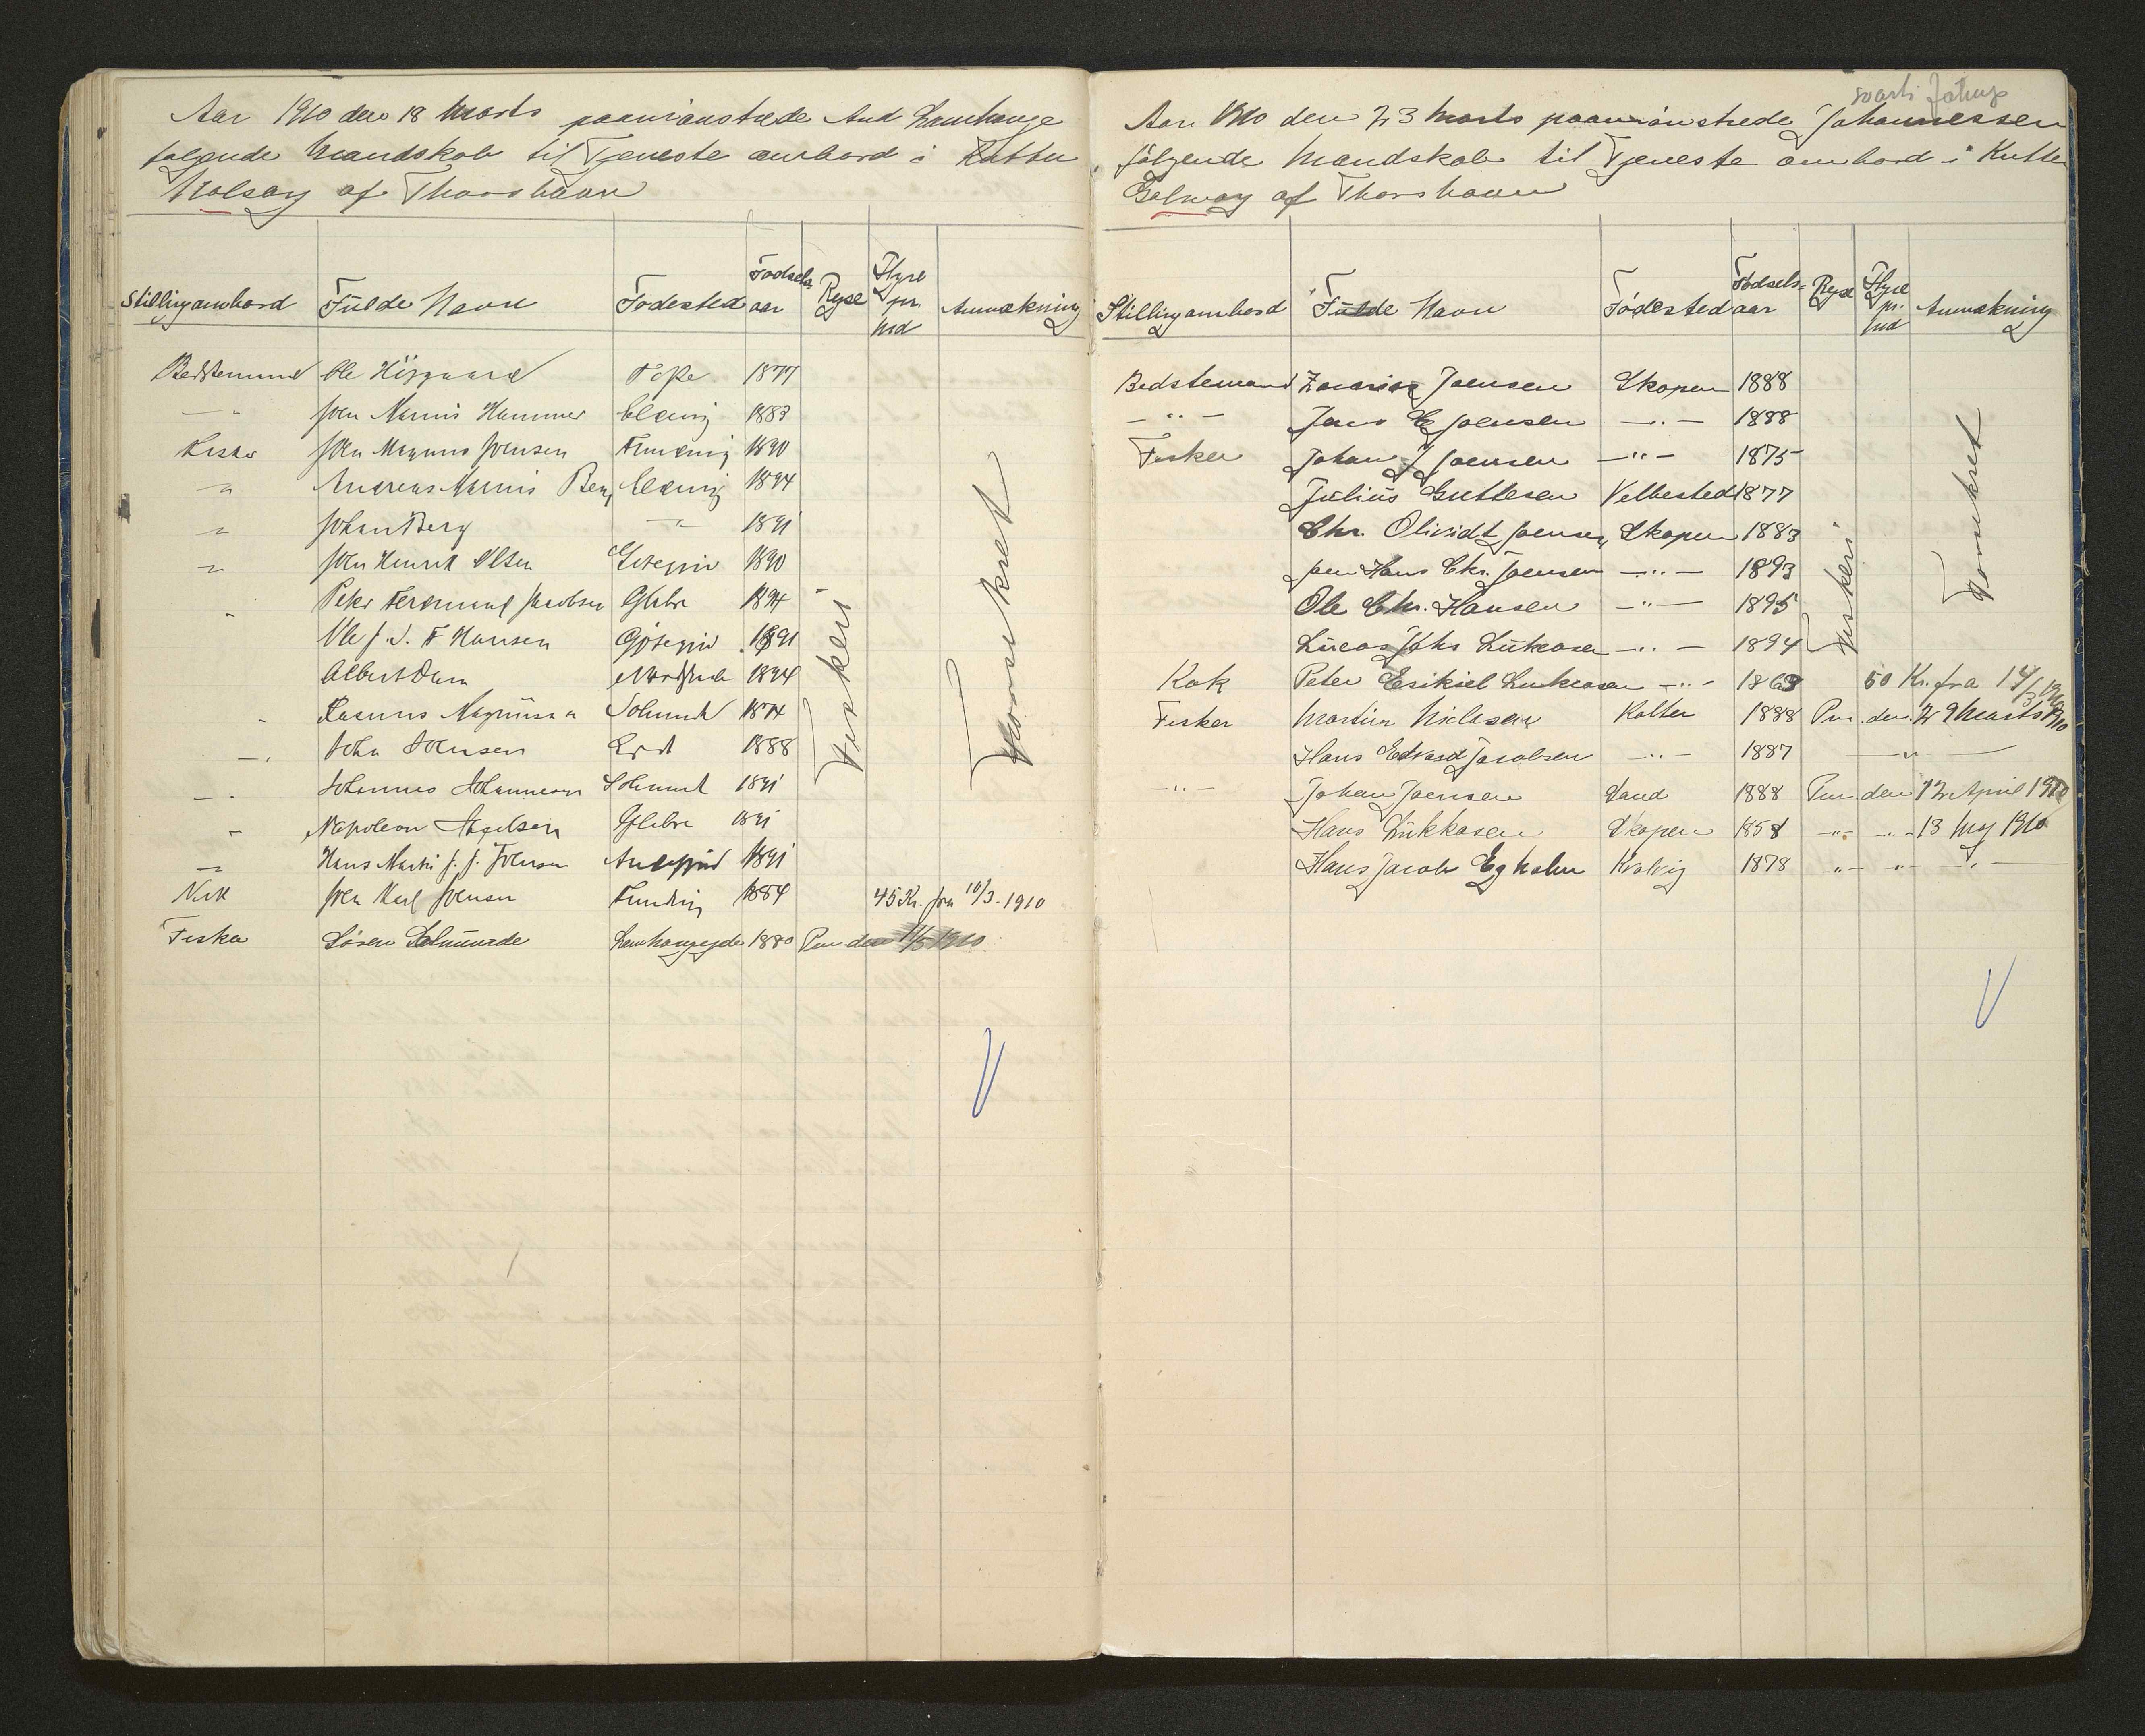 Aar 1910 den 18 Marts paamönstrede And Lamhauge
følgende Mandskab til Tjeneste ombord i Kutter
Nolsøy af Thorshavn
Stilling ombord Fulde Navn Fødested Fødsels aar Rejse Hyre pr. Md Anmærkning
Bedstemand Ole Höjgaard Tofte 1877
— " Joen Marius Hammer 1883
Fisker Joen Magnus Joensen Funding 1890
" Andreas Marius Berg 1894
" Johan Berg — " — 1891
" Joen Henrik Olsen Gjtegjov 1890
" Peter Ferdinand Jacobsen Glibre 1894
Ole J. J. F Hansen Gjtegjov 1891
Albert Dam Nordskaale 1894
Rasmus Magnussen Solmunde 1874
— " John Joensen Ejde 1888
— " Johannes Johannesen Solmunde 1891
" Napoleon Glibre 1891
" Hans Martin J. J. Joensen Andefjord 1891
Kok Joen Karl Joensen Funding 1884 45 Kr. fra 10/3. 1910
Fisker Sören Solmunde Lamhaugegjde 1880 Pm den 11/5 1910
Fiskeri
Færøsk ret
Marti Jákup
Aar 1910 den 23 Marts paamönstrede Johannessen
følgende Mandskab til Tjeneste ombord i Kutter
Galway af Thorshavn
Stilling ombord Fulde Navn Fødested Fødsels- aar Rejse Hyre pr. Md Anmærkning
Bedstemand Zacarias Joensen Skopen 1888
— " — Jens E Joensen — " — 1888
Fisker Johan J Joensen — " — 1875
Julius Guttesen Velbested 1877
Chr. Olividt Joensen Skopen 1883
Joen Hans Chr. Joensen — " — 1893
Ole Chr. Hansen — " — 1895
Lucas Johs Lukasen — " — 1894
Kok Peter Esikiel Lukasen — " — 1863 50 Kr. fra 14/3 1910
Fisker Martin Niclasen Kolter 1888 Pm. den. 29 Marts 1910
Hans Edvard Jacobsen — " — 1887 — " —
— " — Johan Joensen Sand 1888 Pm. den 12 April 1910
Hans Lukkasen Skopen 1858 — " — " — 13 Maj 1910
Hans Jacob Egholm Kvalvig 1878 " — " — " —
Fiskeri
Færøsk ret